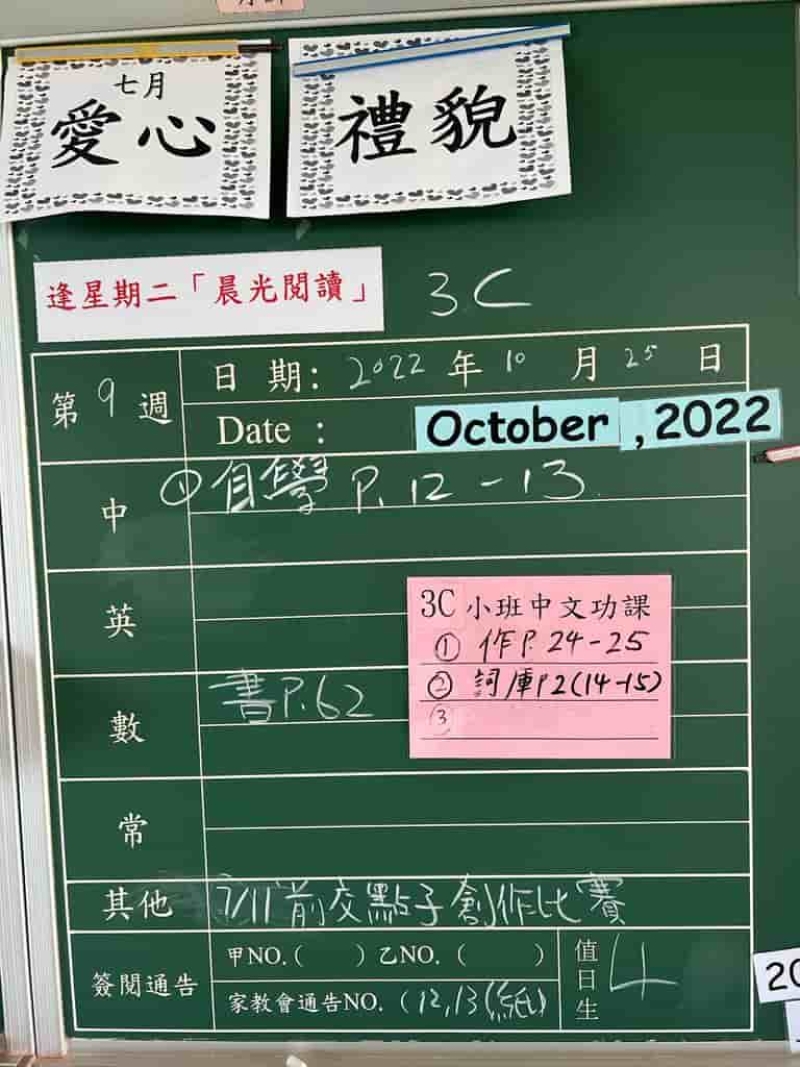 七月
愛心
禮貌
逢星期二「晨光閱讀」
3C
第9週
日 期: 2022 年 10 月 25 日
Date :
October , 2022
中
① 自學 P. 12 - 13
英
3C 小班中文功課
① 作P. 24-25
② 詞庫P2(14-15)
③
數
書P.62
常
其他
7/11前交點子創作比賽
簽閱通告
甲NO.( ) 乙NO.( )
家教會通告NO.(12,13(紙)
值日生
4
20